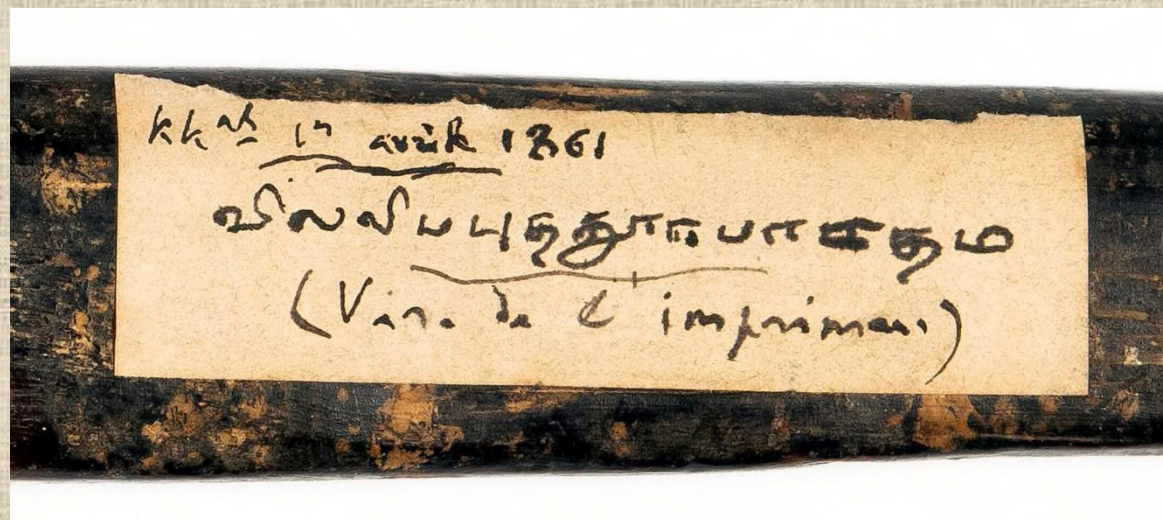 kkal 1er avril 1861
விலலிபபுததூரபாரதம
(Var. de l'imprimeur)